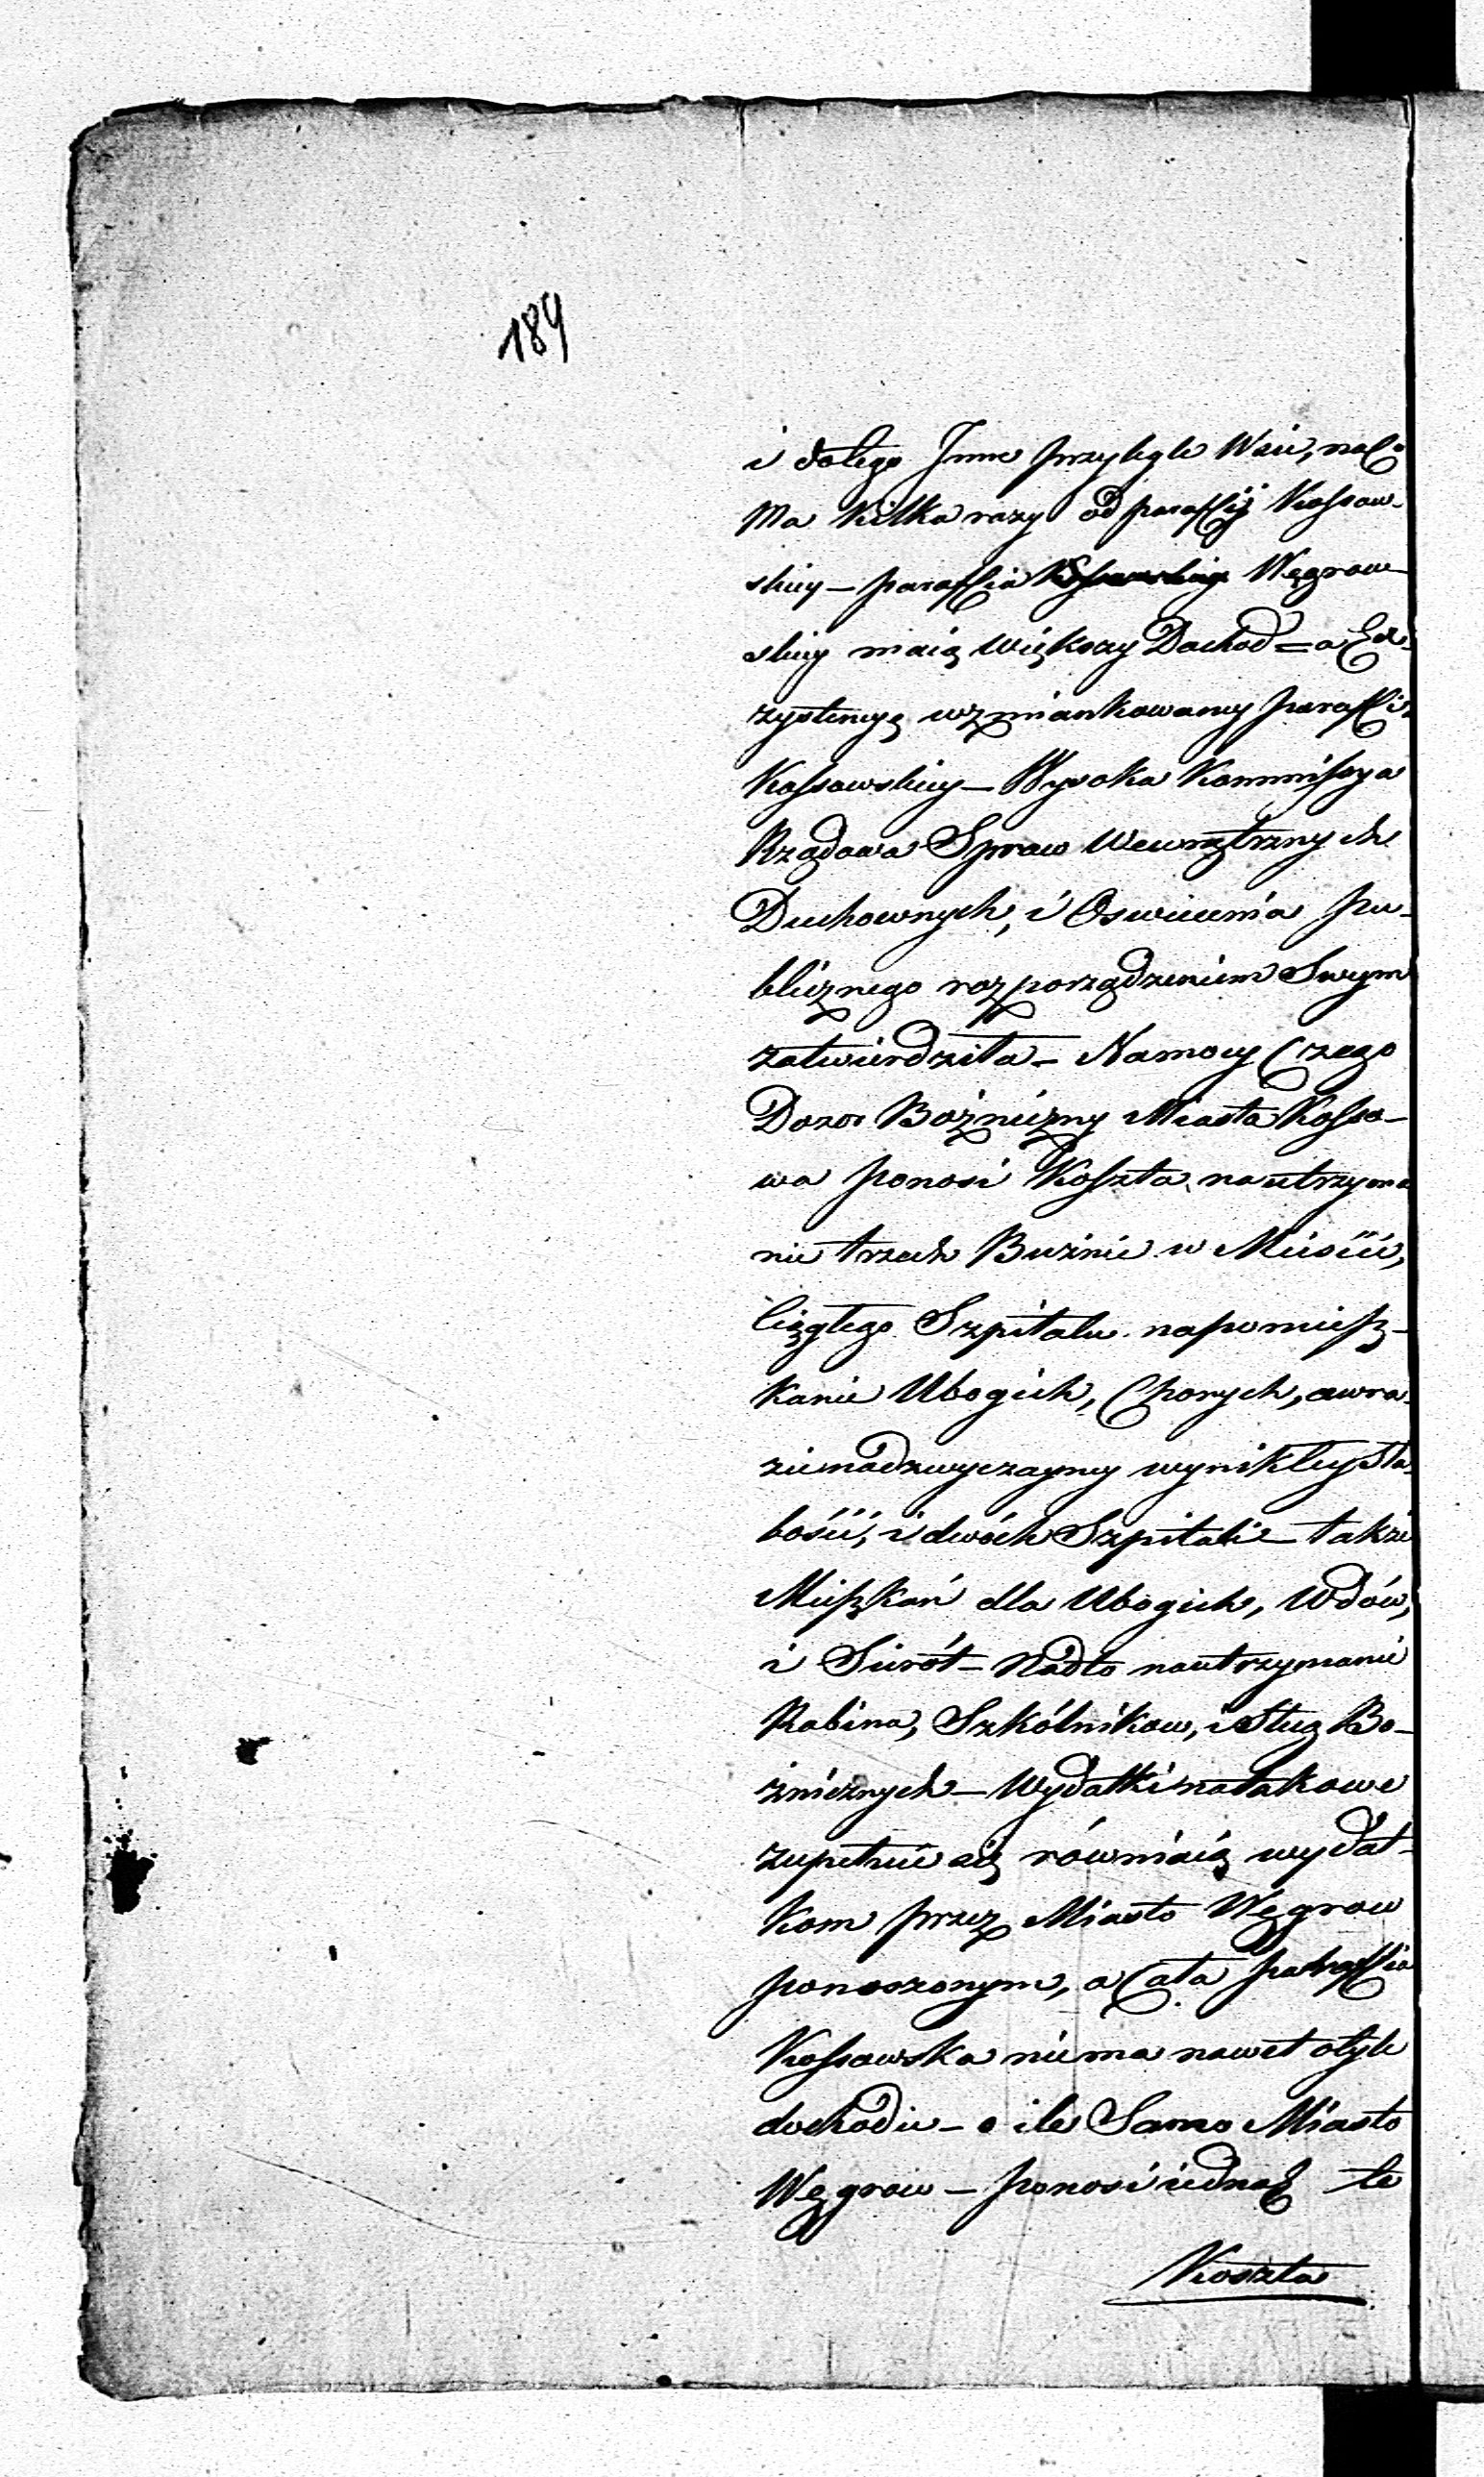 189
i dotego Jnne przyległe Wsie, na Co
Ma kilka razy od paraffij Kossow-
skiey – paraffia Węgrow-
skiey maią większy Dochod = a Exi-
zystencyę wzmiankowaney paraffii
Kossowskiey – Wysoka Kommissya
Rządowa Spraw Wewnętrznych
Duchownych, i Oswiecenia Pu-
blicznego rozporządzeniem Swym
zatwierdziła – Namocy Czego
Dozor Bożniczny Miasta Kosso-
wa ponosi Koszta na utrzyma
nie trzech Bużnic w Mieście,
Ciągłego Szpitalu na pomiesz-
kanie Ubogich, Chorych, a w ra-
zie nadzwyczayney wynikłey sła-
bości, i dwóch Szpitali – także
Mieszkań dla Ubogich, Wdów,
i Sierót – Nadto na utrzymanie
Rabina, Szkólnikow, i Sług Bo-
żnicznych – Wydatki na takowe
zupełnie się równaią wydat-
kom przez Miasto Węgrow
ponoszonym, a Cała parafia
Kossowska niema nawet otyle
dochodu – o ile Samo Miasto
Węgrow – ponosi iednak te
Koszta